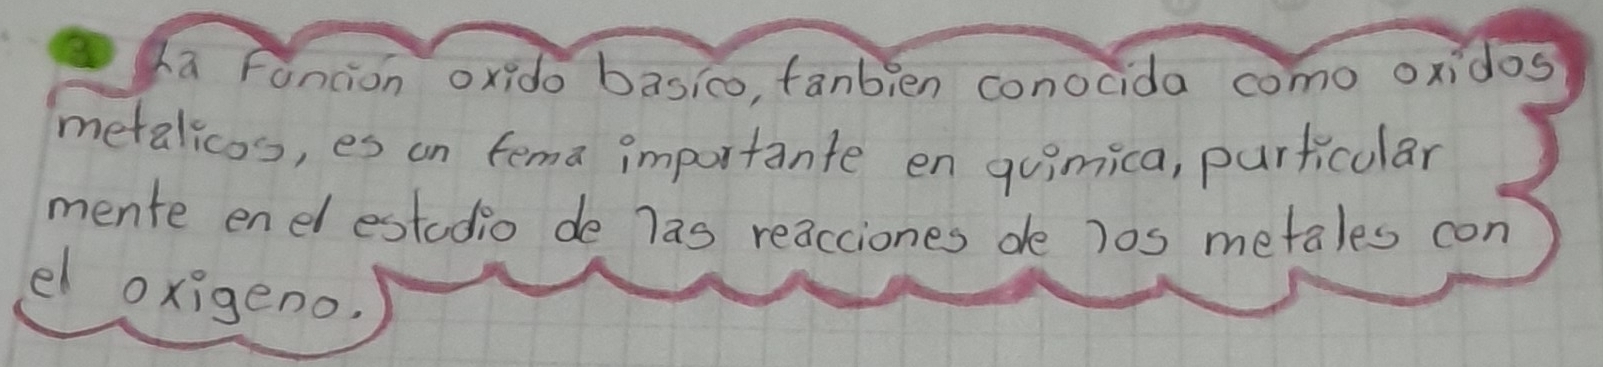 3 La Función oxido basico, tanbien conocida como oxidos
metalicos, es un tema importante en quimica, particular
mente en el estudio de las reacciones de los metales con
el oxigeno.